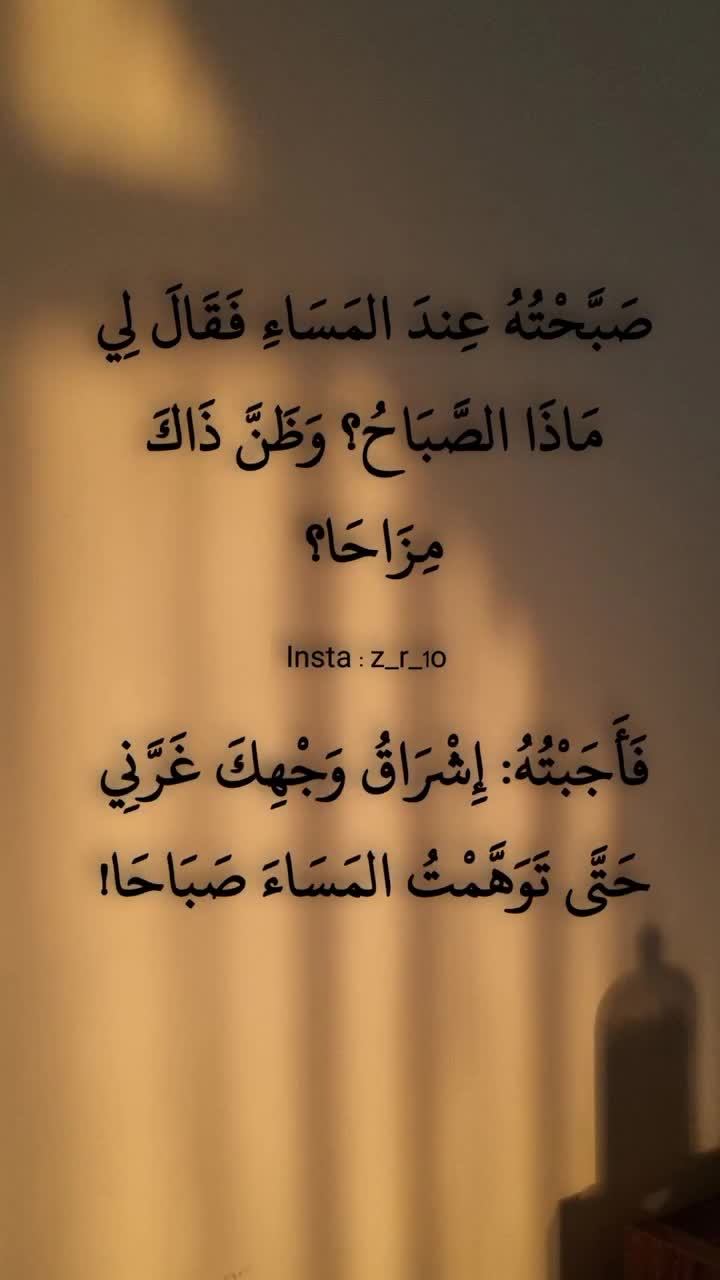 صَبَّحْتُهُ عِندَ المَسَاءِ فَقَالَ لِي
مَاذَا الصَّبَاحُ؟ وَظَنَّ ذَاكَ
مِزَاحَا؟
Insta : z_r_10
فَأَجَبْتُهُ: إِشْرَاقُ وَجْهِكَ غَرَّنِي
حَتَّى تَوَهَّمْتُ المَسَاءَ صَبَاحَا!